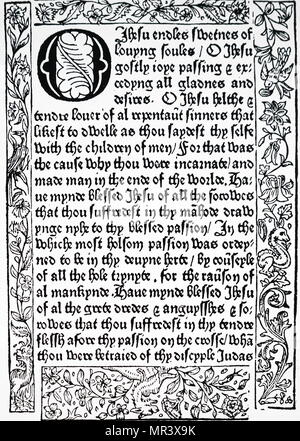 O Jhesu endles swetnes of
louyng soules / O Jhesu
gostly ioye passing & ex-
cedyng all gladnes and
desires. O Jhesu helthe &
tendre louer of al repentaūt sinners that
likest to dwelle as thou saydest thy selfe
with the children of men / For that was
the cause why thou were incarnate / and
made man in the ende of the worlde. Ha-
ue mynde blessed Jhesu of all the sorowes
that thou suffredest in thy māhode draw
ynge nyhe to thy blessed passion / In the
whiche most holsom passion was ordey-
ned to be in thy deuyne herte / by coūseyle
of all the hole trynyte . for the raūson of
al mankynde. Haue mynde blessed Jhesu
of al the grete dredes & anguysshes & so-
rowes that thou suffredest in thy tendre
flessh afore thy passion on the crosse / whā
thou were betraied of thy discyple Judas
alamy
Image ID: MR3X9K
www.alamy.com